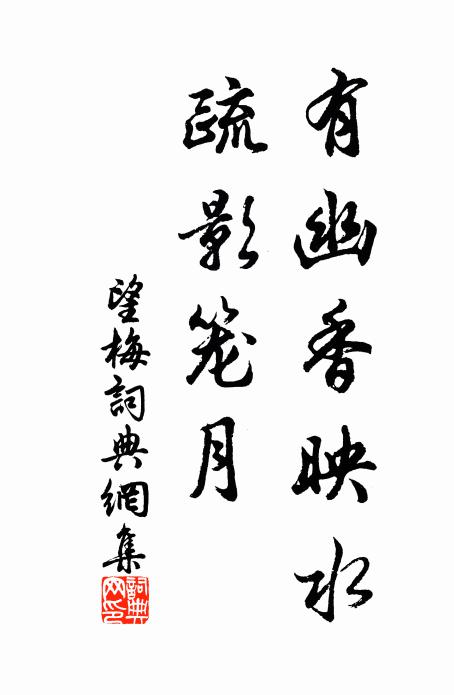 有幽香映水
疏影笼月
望梅詞典網集
詞典網印